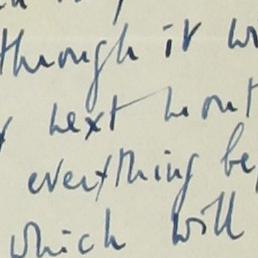 through it wi
next mont
everything be
which will